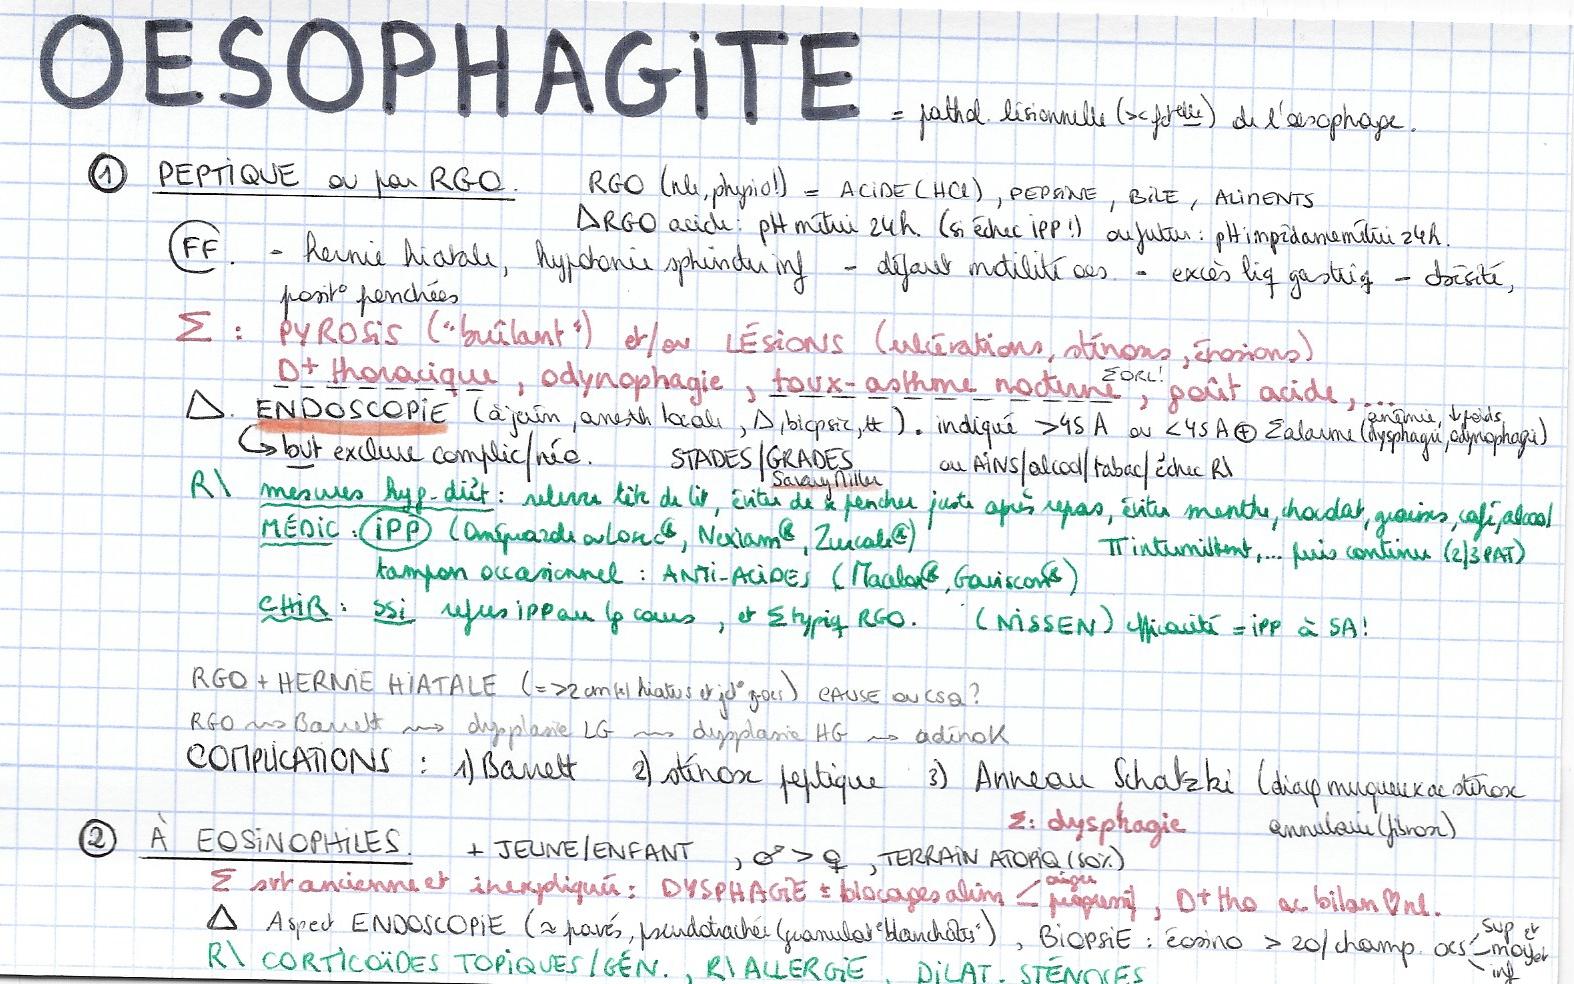 OESOPHAGITE
= pathol. lésionnelle (>< fctelle) de l'oesophage.
① PEPTIQUE ou par RGO. RGO (nle, physio!) = ACIDE (HCl), PEPSINE, BILE, ALIMENTS
Δ RGO acide : pH métrie 24h. (si échec IPP!) ou futur : pH impédancemétrie 24h.
FF. - hernie hiatale, hypotonie sphincter inf - défaut motilité oes - excès liq gastriq - obésité,
posit° penchées
Σ : PYROSIS ("brûlant") et/ou LÉSIONS (ulcérations, sténoses, érosions)
D+ thoracique, odynophagie, toux-asthme nocturne, goût acide,...
ΣORL!
Δ. ENDOSCOPIE (à jeun, anesth locale, Δ, biopsie, tt). indiqué >45A ou <45A ⊕ Σ alarme (dysphagie, odynophagie)
anémie, ↓poids
↪ but exclure complic/néo. STADES/GRADES ou AINS/alcool/tabac/échec R\
Savary Miller
R\ mesures hyg-diét : relever tête de lit, éviter de se pencher juste après repas, éviter menthe, chocolat, graisses, café, alcool
MÉDIC : IPP (Oméprazole ou Losec®, Nexiam®, Zurcale®) TT intermittent,... puis continu (2/3 PAT)
tampon occasionnel : ANTI-ACIDES (Maalox®, Gaviscon®)
CHIR : ssi refus IPP au lg cours, et Σ typiq RGO. (NISSEN) efficacité = IPP à 5A!
RGO + HERNIE HIATALE (= >2cm hiatus et jct° ) CAUSE ou CSQ?
RGO ⟿ Barrett ⟿ dysplasie LG ⟿ dysplasie HG ⟿ adénoK
COMPLICATIONS : 1) Barrett 2) sténose peptique 3) Anneau Schatzki (diap muqueux ac sténose
Σ: dysphagie annulaire (fibrose)
② À EOSINOPHILES. + JEUNE/ENFANT, ♂ > ♀, TERRAIN ATOPIQ (50%)
Σ svt ancienne et inexpliquée : DYSPHAGIE ± blocages alim < aigus
progressif, D+ tho ac bilan ♡ nl.
Δ Aspect ENDOSCOPIE (≈ pavés, pseudotrachée (granulat° blanchâtes"), BIOPSIE : éosino > 20/champ. oes sup et
moy et
inf
R\ CORTICOÏDES TOPIQUES/GÉN., R\ ALLERGIE, DILAT. STÉNOSES